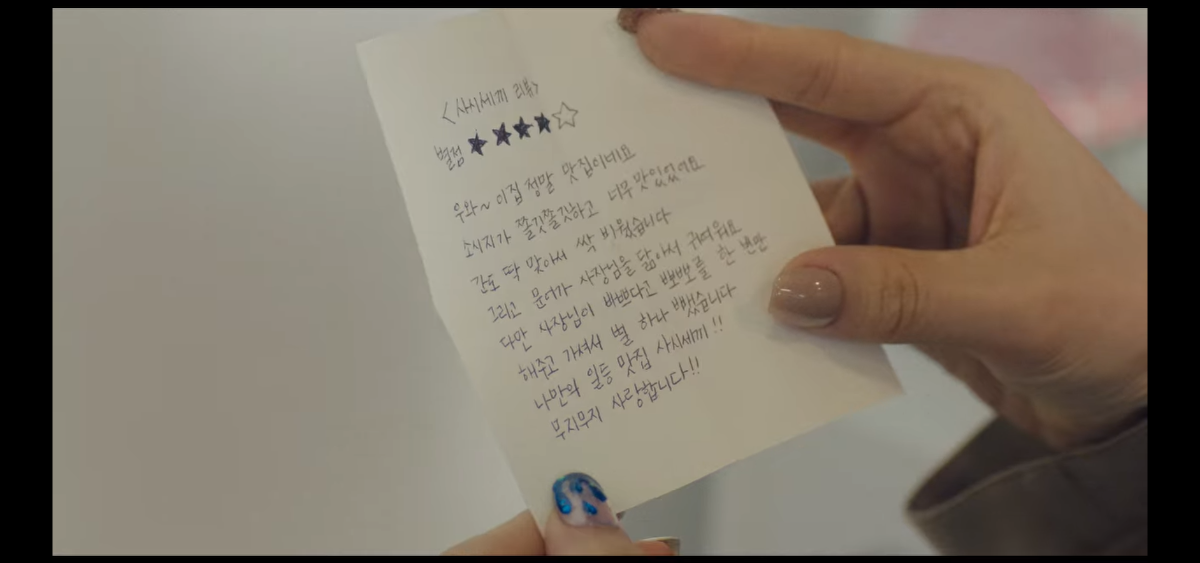 <사시세끼 리뷰>
별점 ★★★★☆
우와~ 이집 정말 맛집이네요
소시지가 쫄깃쫄깃하고 너무 맛있었어요
간도 딱 맞아서 싹 비웠습니다
그리고 문어가 사장님을 닮아서 귀여워요
다만 사장님이 바쁘다고 뽀뽀를 한 번만
해주고 가셔서 별 하나 뺐습니다
나만의 일등 맛집 사시세끼!!
무지무지 사랑합니다!!